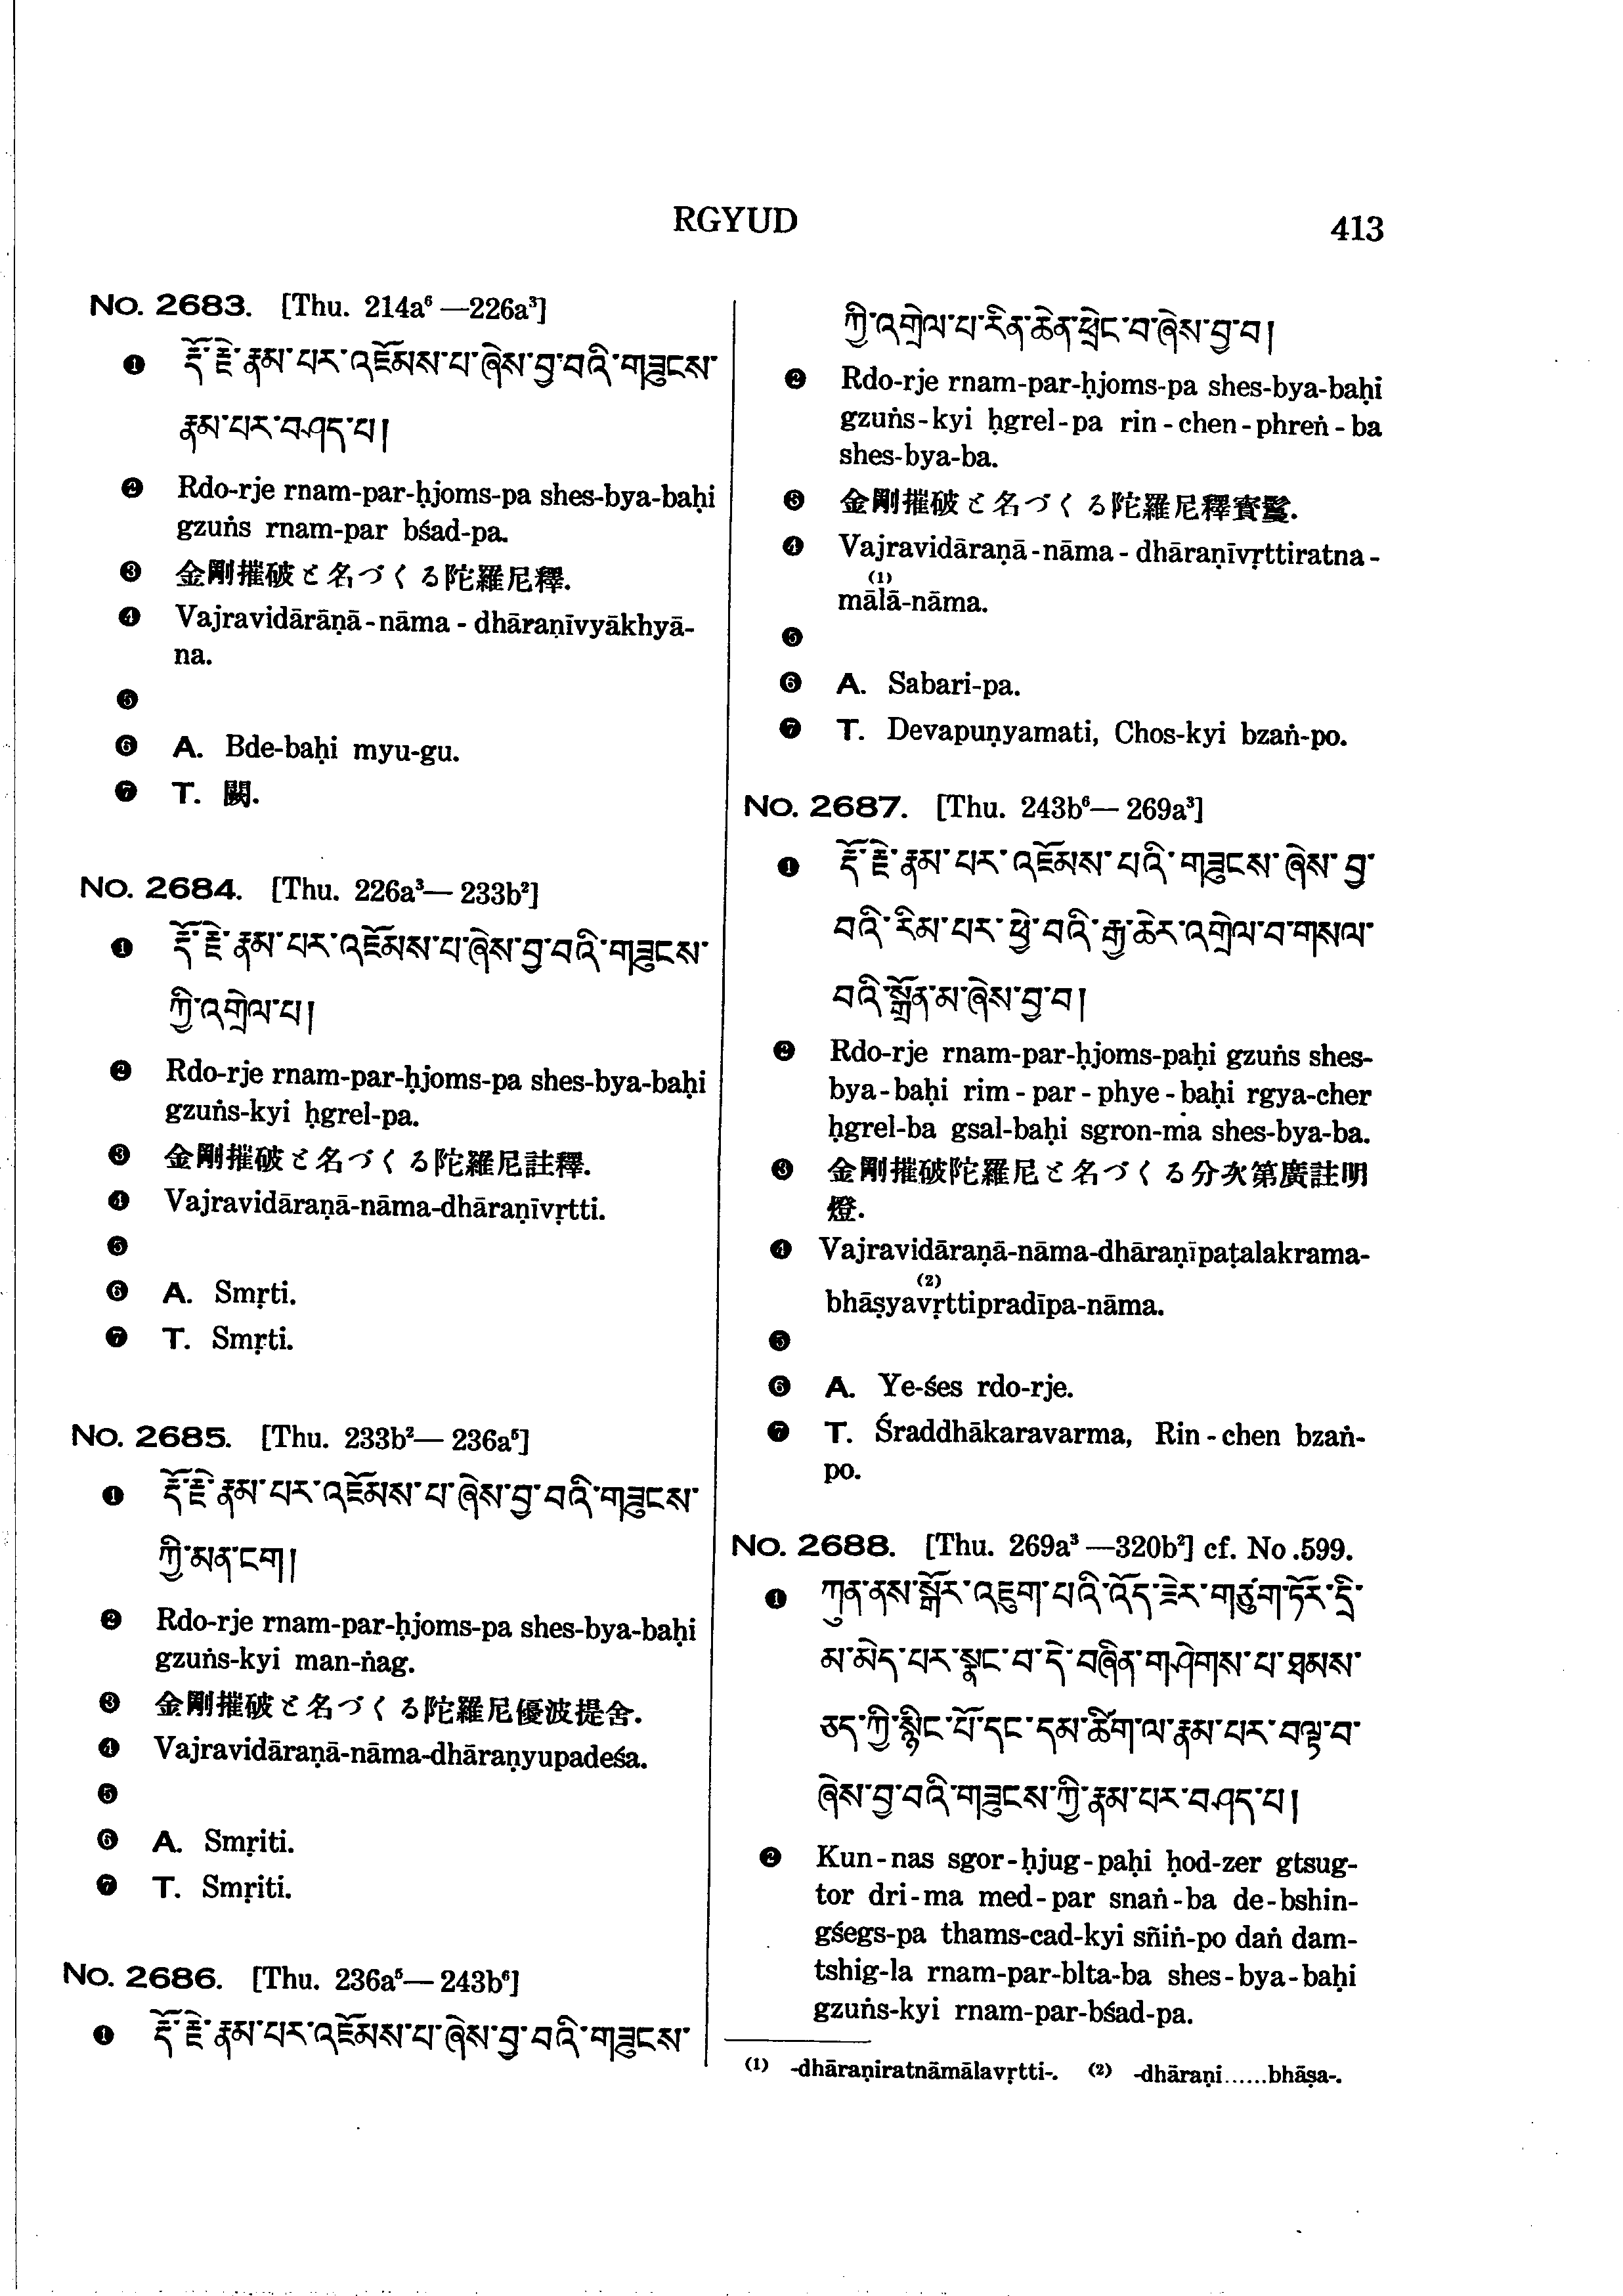 RGYUD
413
No. 2683. [Thu. 214a⁶ —226a³]
❶ རྡོ་རྗེ་རྣམ་པར་འཇོམས་པ་ཞེས་བྱ་བའི་གཟུངས་
རྣམ་པར་བཤད་པ།
❷ Rdo-rje rnam-par-ḥjoms-pa shes-bya-baḥi
gzuṅs rnam-par bśad-pa.
❸ 金剛摧破と名づくる陀羅尼釋.
❹ Vajravidārāṇā-nāma-dhāraṇīvyākhyā-
na.
❺
❻ A. Bde-baḥi myu-gu.
❼ T. 闕.
No. 2684. [Thu. 226a³— 233b²]
❶ རྡོ་རྗེ་རྣམ་པར་འཇོམས་པ་ཞེས་བྱ་བའི་གཟུངས་
ཀྱི་འགྲེལ་པ།
❷ Rdo-rje rnam-par-ḥjoms-pa shes-bya-baḥi
gzuṅs-kyi ḥgrel-pa.
❸ 金剛摧破と名づくる陀羅尼註釋.
❹ Vajravidāraṇā-nāma-dhāraṇīvṛtti.
❺
❻ A. Smṛti.
❼ T. Smṛti.
No. 2685. [Thu. 233b²— 236a⁵]
❶ རྡོ་རྗེ་རྣམ་པར་འཇོམས་པ་ཞེས་བྱ་བའི་གཟུངས་
ཀྱི་མན་ངག།
❷ Rdo-rje rnam-par-ḥjoms-pa shes-bya-baḥi
gzuṅs-kyi man-ṅag.
❸ 金剛摧破と名づくる陀羅尼優波提舍.
❹ Vajravidāraṇā-nāma-dhāraṇyupadeśa.
❺
❻ A. Smṛiti.
❼ T. Smṛiti.
No. 2686. [Thu. 236a⁵— 243b⁶]
❶ རྡོ་རྗེ་རྣམ་པར་འཇོམས་པ་ཞེས་བྱ་བའི་གཟུངས་
ཀྱི་འགྲེལ་པ་རིན་ཆེན་ཕྲེང་བ་ཞེས་བྱ་བ།
❷ Rdo-rje rnam-par-ḥjoms-pa shes-bya-baḥi
gzuṅs-kyi ḥgrel-pa rin-chen-phreṅ-ba
shes-bya-ba.
❸ 金剛摧破と名づくる陀羅尼釋寳鬘.
❹ Vajravidāraṇā-nāma-dhāraṇīvṛttiratna-
(1)
mālā-nāma.
❺
❻ A. Sabari-pa.
❼ T. Devapuṇyamati, Chos-kyi bzaṅ-po.
No. 2687. [Thu. 243b⁶— 269a³]
❶ རྡོ་རྗེ་རྣམ་པར་འཇོམས་པའི་གཟུངས་ཞེས་བྱ་
བའི་རིམ་པར་ཕྱེ་བའི་རྒྱ་ཆེར་འགྲེལ་བ་གསལ་
བའི་སྒྲོན་མ་ཞེས་བྱ་བ།
❷ Rdo-rje rnam-par-ḥjoms-paḥi gzuṅs shes-
bya-baḥi rim-par-phye-baḥi rgya-cher
ḥgrel-ba gsal-baḥi sgron-ma shes-bya-ba.
❸ 金剛摧破陀羅尼と名づくる分次第廣註明
燈.
❹ Vajravidāraṇā-nāma-dhāraṇīpaṭalakrama-
(2)
bhāṣyavṛttipradīpa-nāma.
❺
❻ A. Ye-śes rdo-rje.
❼ T. Śraddhākaravarma, Rin-chen bzaṅ-
po.
No. 2688. [Thu. 269a³ —320b²] cf. No .599.
❶ ཀུན་ནས་སྒོར་འཇུག་པའི་འོད་ཟེར་གཙུག་ཏོར་དྲི་
མ་མེད་པར་སྣང་བ་དེ་བཞིན་གཤེགས་པ་ཐམས་
ཅད་ཀྱི་སྙིང་པོ་དང་དམ་ཚིག་ལ་རྣམ་པར་བལྟ་བ་
ཞེས་བྱ་བའི་གཟུངས་ཀྱི་རྣམ་པར་བཤད་པ།
❷ Kun-nas sgor-ḥjug-paḥi ḥod-zer gtsug-
tor dri-ma med-par snaṅ-ba de-bshin-
gśegs-pa thams-cad-kyi sñiṅ-po daṅ dam-
tshig-la rnam-par-blta-ba shes-bya-baḥi
gzuṅs-kyi rnam-par-bśad-pa.
(1) -dhāraṇiratnāmālavṛtti-. (2) -dhāraṇi......bhāṣa-.